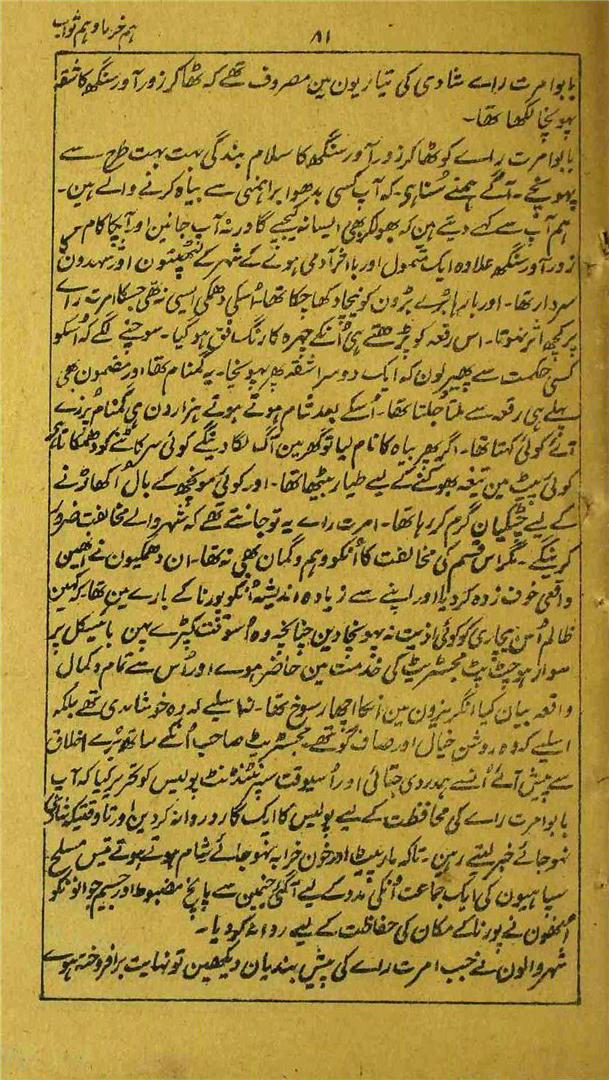 ہم خرما و ہم ثواب
۸۱
بابو امرت راے شادی کی تیاریون مین مصروف تھے کہ ٹھاکر زور آور سنگھ کا شقہ
پہونچا لکھا تھا۔
بابو امرت راے کو ٹھاکر زور آور سنگھ کا سلام بندگی بہت بہت طرح سے
پہونچے۔ آگے ہمنے سُنا ہی کہ آپ کسی بدھوا براہمنی سے بیاہ کرنے والے ہین۔
ہم آپ سے کہے دیتے ہین کہ بھولکر بھی ایسا نہ کیجیے گا ورنہ آپ جانین اور آپکا کام۔
زور آور سنگھ علاوہ ایک متمول اور با اثر آدمی ہونے کے شہر کے لٹھیتون اور شہدون کا
سردار تھا۔ اور بارہا بڑے بڑون کو نیچا دکھا چکا تھا۔ اُسکی دھمکی ایسی نہ تھی جسکا امرت راے
پر کچھ اثر نہوتا۔ اس رقعہ کو پڑھتے ہی اُنکے چہرہ کا رنگ فق ہو گیا۔ سوچنے لگے کہ اُسکو
کسی حکمت سے پھیر لون کہ ایک دوسرا شقہ پھر پہونچا۔ یہ گمنام تھا اور مضمون بھی
پہلے ہی رقعہ سے ملتا جلتا تھا۔ اُسکے بعد شام ہوتے ہوتے ہزارون ہی گمنام پرزے
آئے کوئی کہتا تھا۔ اگر پھر بیاہ کا نام لیا تو گھر مین آگ لگا دینگے کوئی سر کاٹنے کو دھمکاتا تھا
کوئی پیٹ مین تیغہ بھونکنے کے لیے طیار بیٹھا تھا۔ اور کوئی مونچھ کے بال اُکھاڑنے
کے لیے چٹکیان گرم کر رہا تھا۔ امرت راے یہ تو جانتے تھے کہ شہر والے مخالفت ضرور
کرینگے۔ مگر اس قسم کی مخالفت کا اُنکو وہم و گمان بھی نہ تھا۔ ان دھمکیون نے اُنھین
واقعی خوف زدہ کر دیا اور اپنے سے زیادہ اندیشہ اُنکو پورنا کے بارے مین تھا کہ کہین
ظالم اُس بچاری کو کوئی اذیت نہ پہونچا دین چنانچہ وہ اُسوقت کپڑے پہن بائیسکل پر
سوار ہو چٹ پٹ مجسٹریٹ کی خدمت مین حاضر ہوے اور اُس سے تمام و کمال
واقعہ بیان کیا انگریزون مین انکا اچھا رسوخ تھا۔ نہ اسلیے کہ وہ خوشامدی تھے بلکہ
اسلیے کہ وہ روشن خیال اور صاف گو تھے۔ مجسٹریٹ صاحب اُنکے ساتھ بڑے اخلاق
سے پیش آئے اُنسے ہمدردی جتائی اور اُسیوقت سپرنٹنڈنٹ پولیس کو تحریر کیا کہ آپ
بابو امرت راے کی محافظت کے لیے پولیس کا ایک گارد روانہ کر دین اور تا وقتیکہ شادی
نہو جائے خبر لیتے رہین۔ تاکہ مار پیٹ اور خون خرابہ نہو جائے شام ہوتے ہوتے تیس مسلح
سپاہیون کی ایک جماعت اُنکی مدد کے لیے آ گئی جنمین سے پانچ مضبوط اور جسیم جوانونکو
اُنھون نے پورنا کے مکان کی حفاظت کے لیے روانہ کر دیا۔
شہر والون نے جب امرت راے کی پیش بندیان دیکھین تو نہایت برافروختہ ہوے